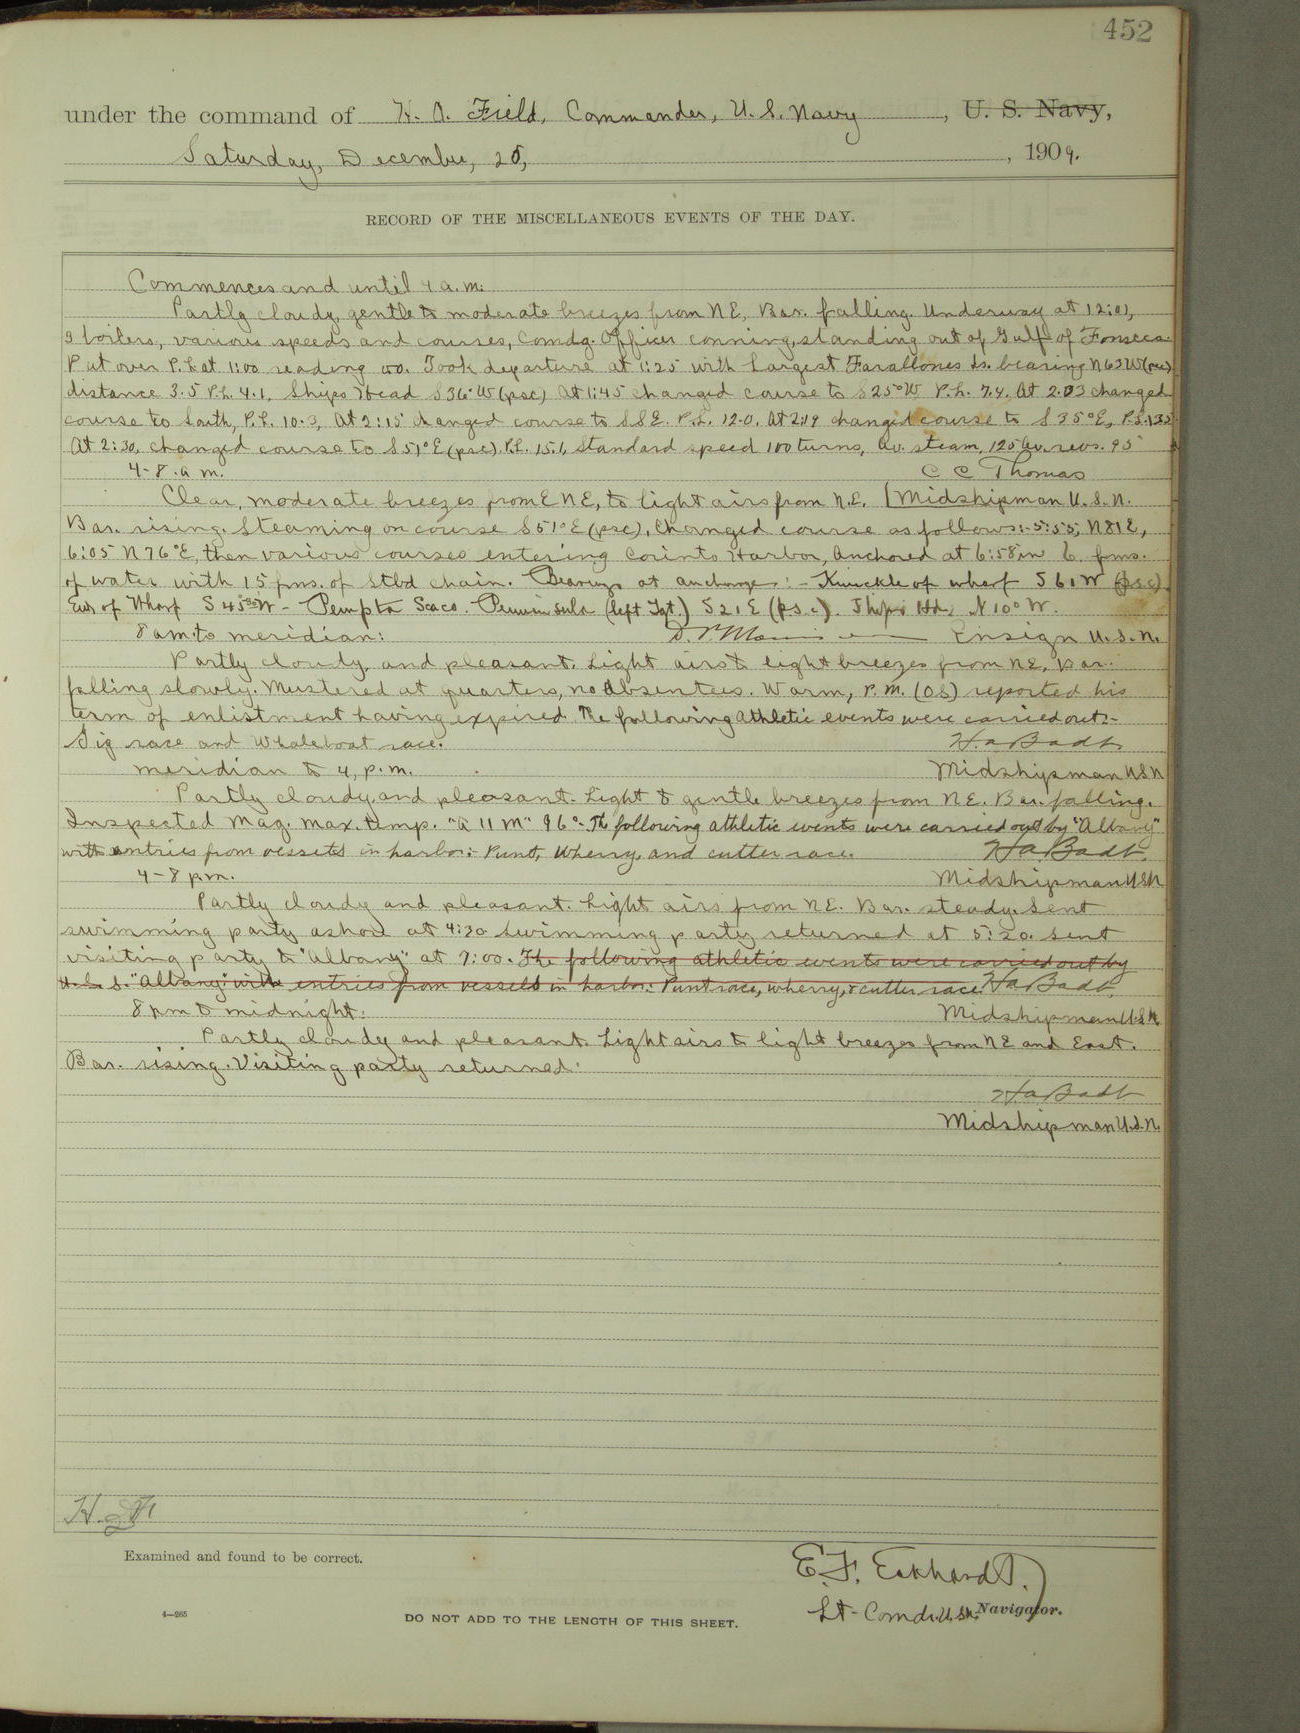 452
under the command of H. O. Field, Commander, U. S. Navy, U. S. Navy,
Saturday, December, 25, 1909.
RECORD OF THE MISCELLANEOUS EVENTS OF THE DAY.
Commences and until 4 a.m.
Partly cloudy, gentle to moderate breezes from NE, Bar. falling. Underway at 12:01,
9 boilers, various speeds and courses, Comdg. Officer conning, standing out of Gulf of Fonseca.
Put over P.L. at 1:00 reading 00. Took departure at 1:25 with Largest Farallones Is. bearing N 63 W (psc)
distance 3.5 P.L. 4.1, Ships Head S 36° W (psc) At 1:45 changed course to S 25° W P.L. 7.4, At 2:03 changed
course to South, P.L. 10.3, At 2:15 changed course to SSE. P.L. 12.0, At 2:19 changed course to S 35° E, P.L. 13.5
At 2:30, changed course to S 51° E (psc). P.L. 15.1, standard speed 100 turns, Av. steam, 125 Av. revs. 95
4-8. a m. C C Thomas
Clear, moderate breezes from ENE, to light airs from N.E. Midshipman U. S. N.
Bar. rising. Steaming on course S 51° E (psc), Changed course as follows:- 5:55, N 81 E,
6:05 N 76° E, then various courses entering Corinto Harbor, Anchored at 6:58 in 6 fms.
of water with 15 fms. of Stbd chain. Bearings at anchorage:- Knuckle of wharf S 61 W (psc)
End of Wharf S 45 W - Peninsula (left Tgt.) S 21 E (p.s.c.). Ships Hd, N 10° W.
8 am. to meridian: Ensign U. S. N.
Partly cloudy and pleasant. Light airs to light breezes from NE, Bar.
falling slowly. Mustered at quarters, no absentees. Warm, P. M. (OS) reported his
term of enlistment having expired. The following athletic events were carried out:-
Gig race and Whaleboat race. H. A Badt
meridian to 4, p.m. Midshipman USN
Partly cloudy and pleasant. Light to gentle breezes from NE. Bar. falling.
Inspected Mag. max. temp. "A 11 M" 96°. The following athletic events were carried out by "Albany"
with entries from vessels in harbor:- Punt, Wherry, and cutter race. H A Badt.
4-8 p.m. Midshipman USN
Partly cloudy and pleasant. Light airs from NE. Bar. steady. Sent
swimming party ashore at 4:30 swimming party returned at 5:20. Sent
visiting party to "Albany" at 7:00. The following athletic events were carried out by
U. S. S. "Albany" with entries from vessels in harbor: Punt race, wherry, & cutter race. H A Badt,
8 pm to midnight: Midshipman U.S.N.
Partly cloudy and pleasant. Light airs to light breezes from NE and East.
Bar. rising. Visiting party returned.
H A Badt
Midshipman U.S.N.
Examined and found to be correct.
E. F. Eckhardt.
Lt- Comdr. U.S.N. Navigator.
4—265
DO NOT ADD TO THE LENGTH OF THIS SHEET.